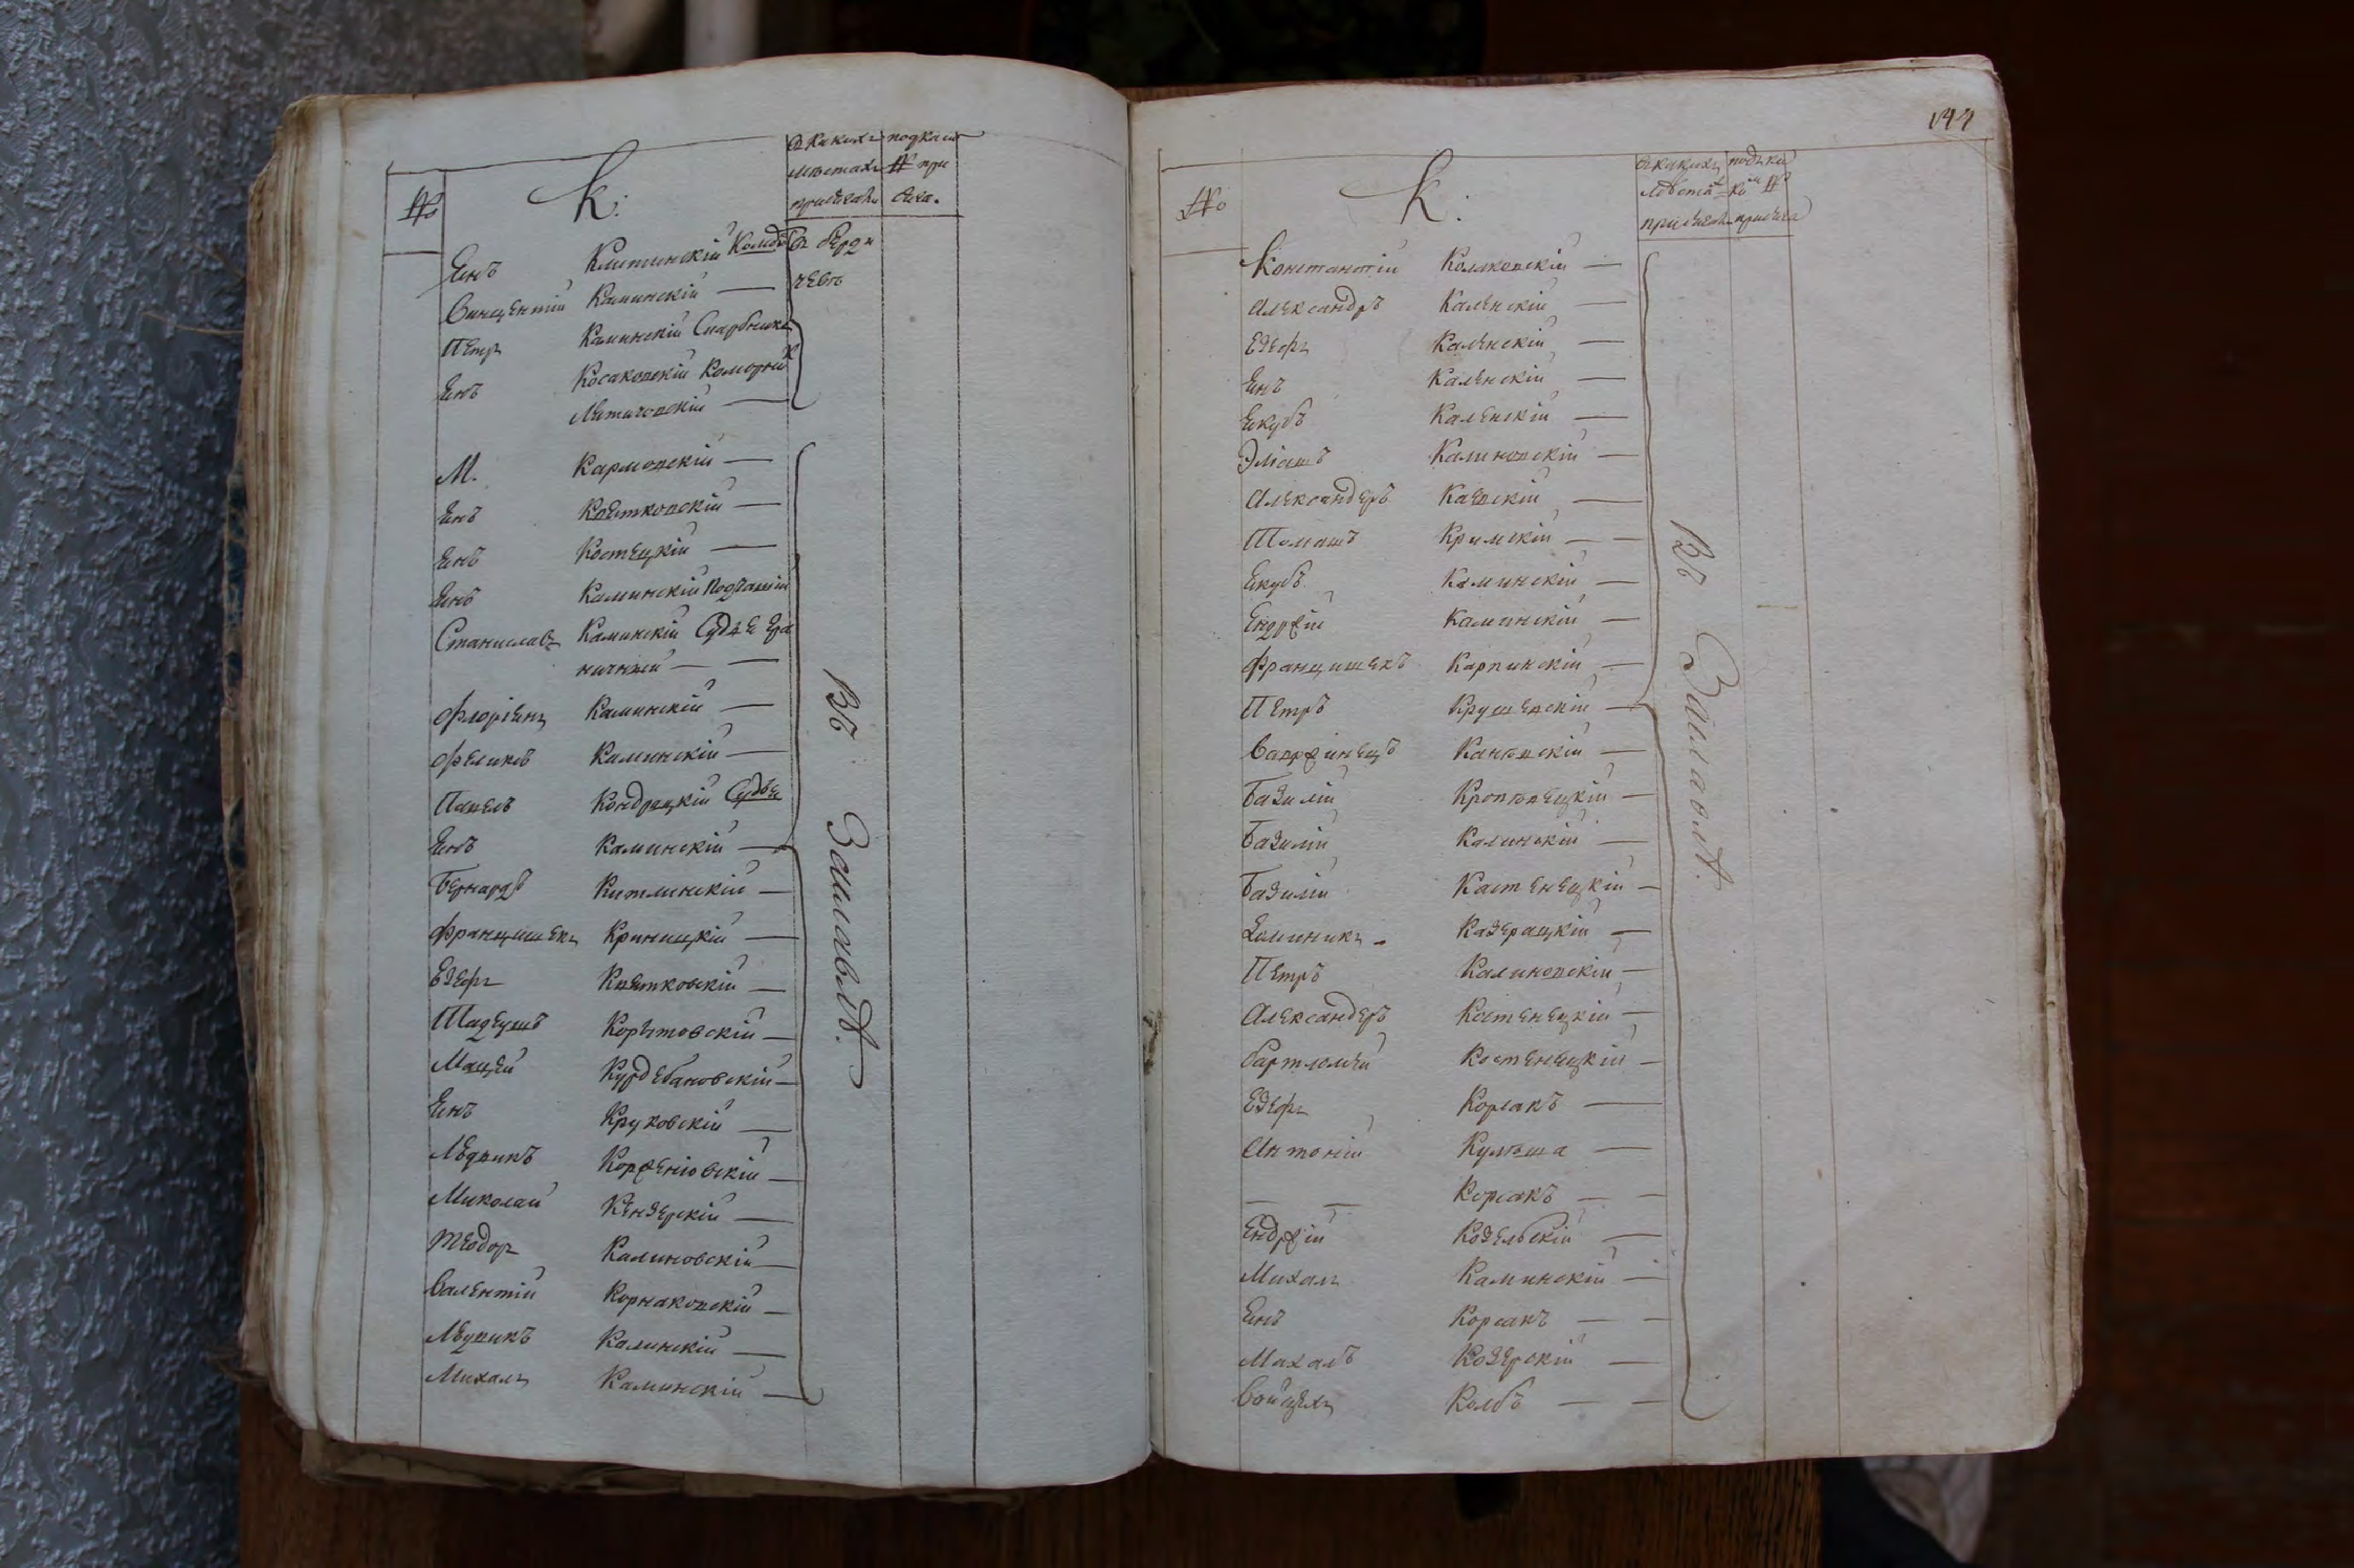 №
К:
въ какихъ мѣстахъ присягали
подкаки
№ при
сяга.
Енъ Клитинскій
въ Берди
чевѣ
Винцентій Каминскій —
Петръ Каминскій Скарбникъ
Енъ Косаковскій Коморни
Летичовскій —
М. Кармовскій —
Енъ Квятковскій —
Енъ Костецкій —
Енъ Каминскій Подчашій
Станиславъ Каминскій Судья Гра
ничный — —
Флоріенъ Каминскій —
Феликсъ Каминскій —
Павелъ Кондрацкій Судья
Енъ Каминскій —
Бернардъ Китлинскій —
Францишекъ Криницкій —
Езефъ Квятковскій —
Тадеушъ Корытовскій —
Мацей Курдебановскій —
Енъ Круковскій —
Людвикъ Корженіовскій —
Миколай Кензерскій —
Теодоръ Калиновскій —
Валентій Корнаковскій —
Людвикъ Калинскій —
Михалъ Каминскій —
Въ Заславлѣ.
144
№
К:
въ какихъ
мѣстахъ
присягали
подъ ка
ким №
присяга
Константій Колаковскій —
Александръ Каленскій —
Езефъ Каленскій —
Енъ Каленскій —
Екубъ Каленскій —
Эліашъ Калиновскій —
Александеръ Каевскій —
Томашъ Кримскій — —
Екубъ Каминскій —
Ендржій Каминскій —
Францишекъ Карпинскій —
Петръ Крушевскій —
Вавржинецъ Каневскій —
Базилій Кропвецкій —
Базилій Калинскій —
Базилій Костенецкій —
Доминикъ Казерацкій —
Петръ Калиновскій —
Александеръ Костенецкій —
Бартломей Костенецкій —
Езефъ Корсакъ —
Антоній Кулѣша —
— — Корсакъ — —
Ендржій Козельскій —
Михалъ Каминскій —
Енъ Корсакъ — —
Михалъ Козерскій —
Войцехъ Колбъ — —
Въ Заславлѣ.